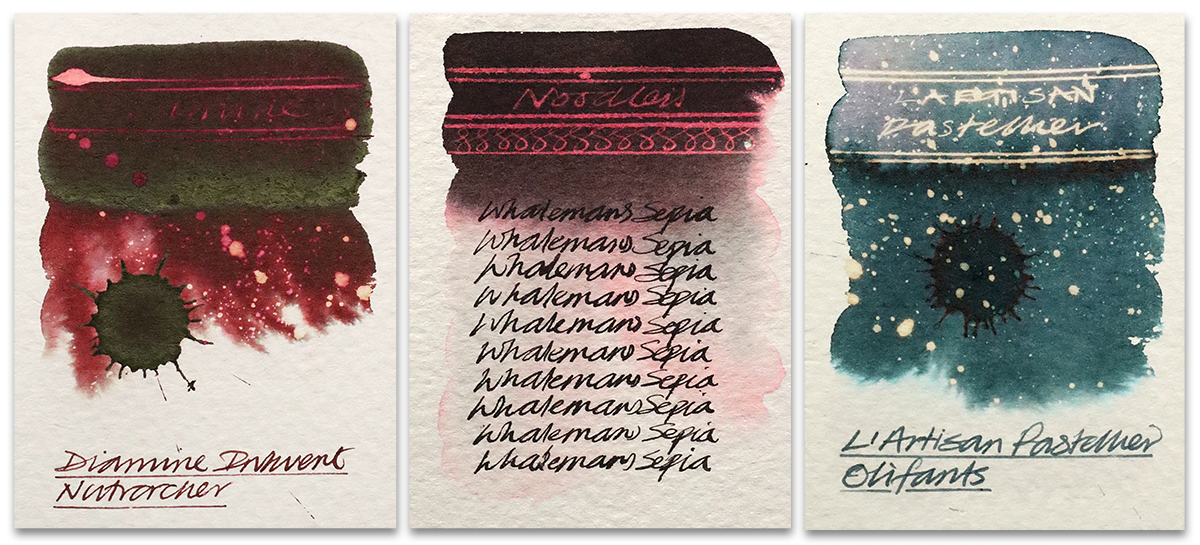 Diamine
Diamine Inkvent
Nutcracker
Noodlers
Whalemans Sepia
Whalemans Sepia
Whalemans Sepia
Whalemans Sepia
Whalemans Sepia
Whalemans Sepia
Whalemans Sepia
Whalemans Sepia
Whalemans Sepia
Whalemans Sepia
L'ARTISAN
Pastellier
L'Artisan Pastellier
Olifants